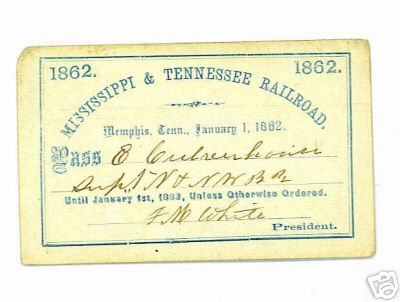 1862. 1862.
MISSISSIPPI & TENNESSEE RAILROAD.
Memphis, Tenn., January 1, 1862.
Pass E Culverhouse
Supt N & N W R R
Until January 1st, 1863, Unless Otherwise Ordered.
F M White
President.
ebY